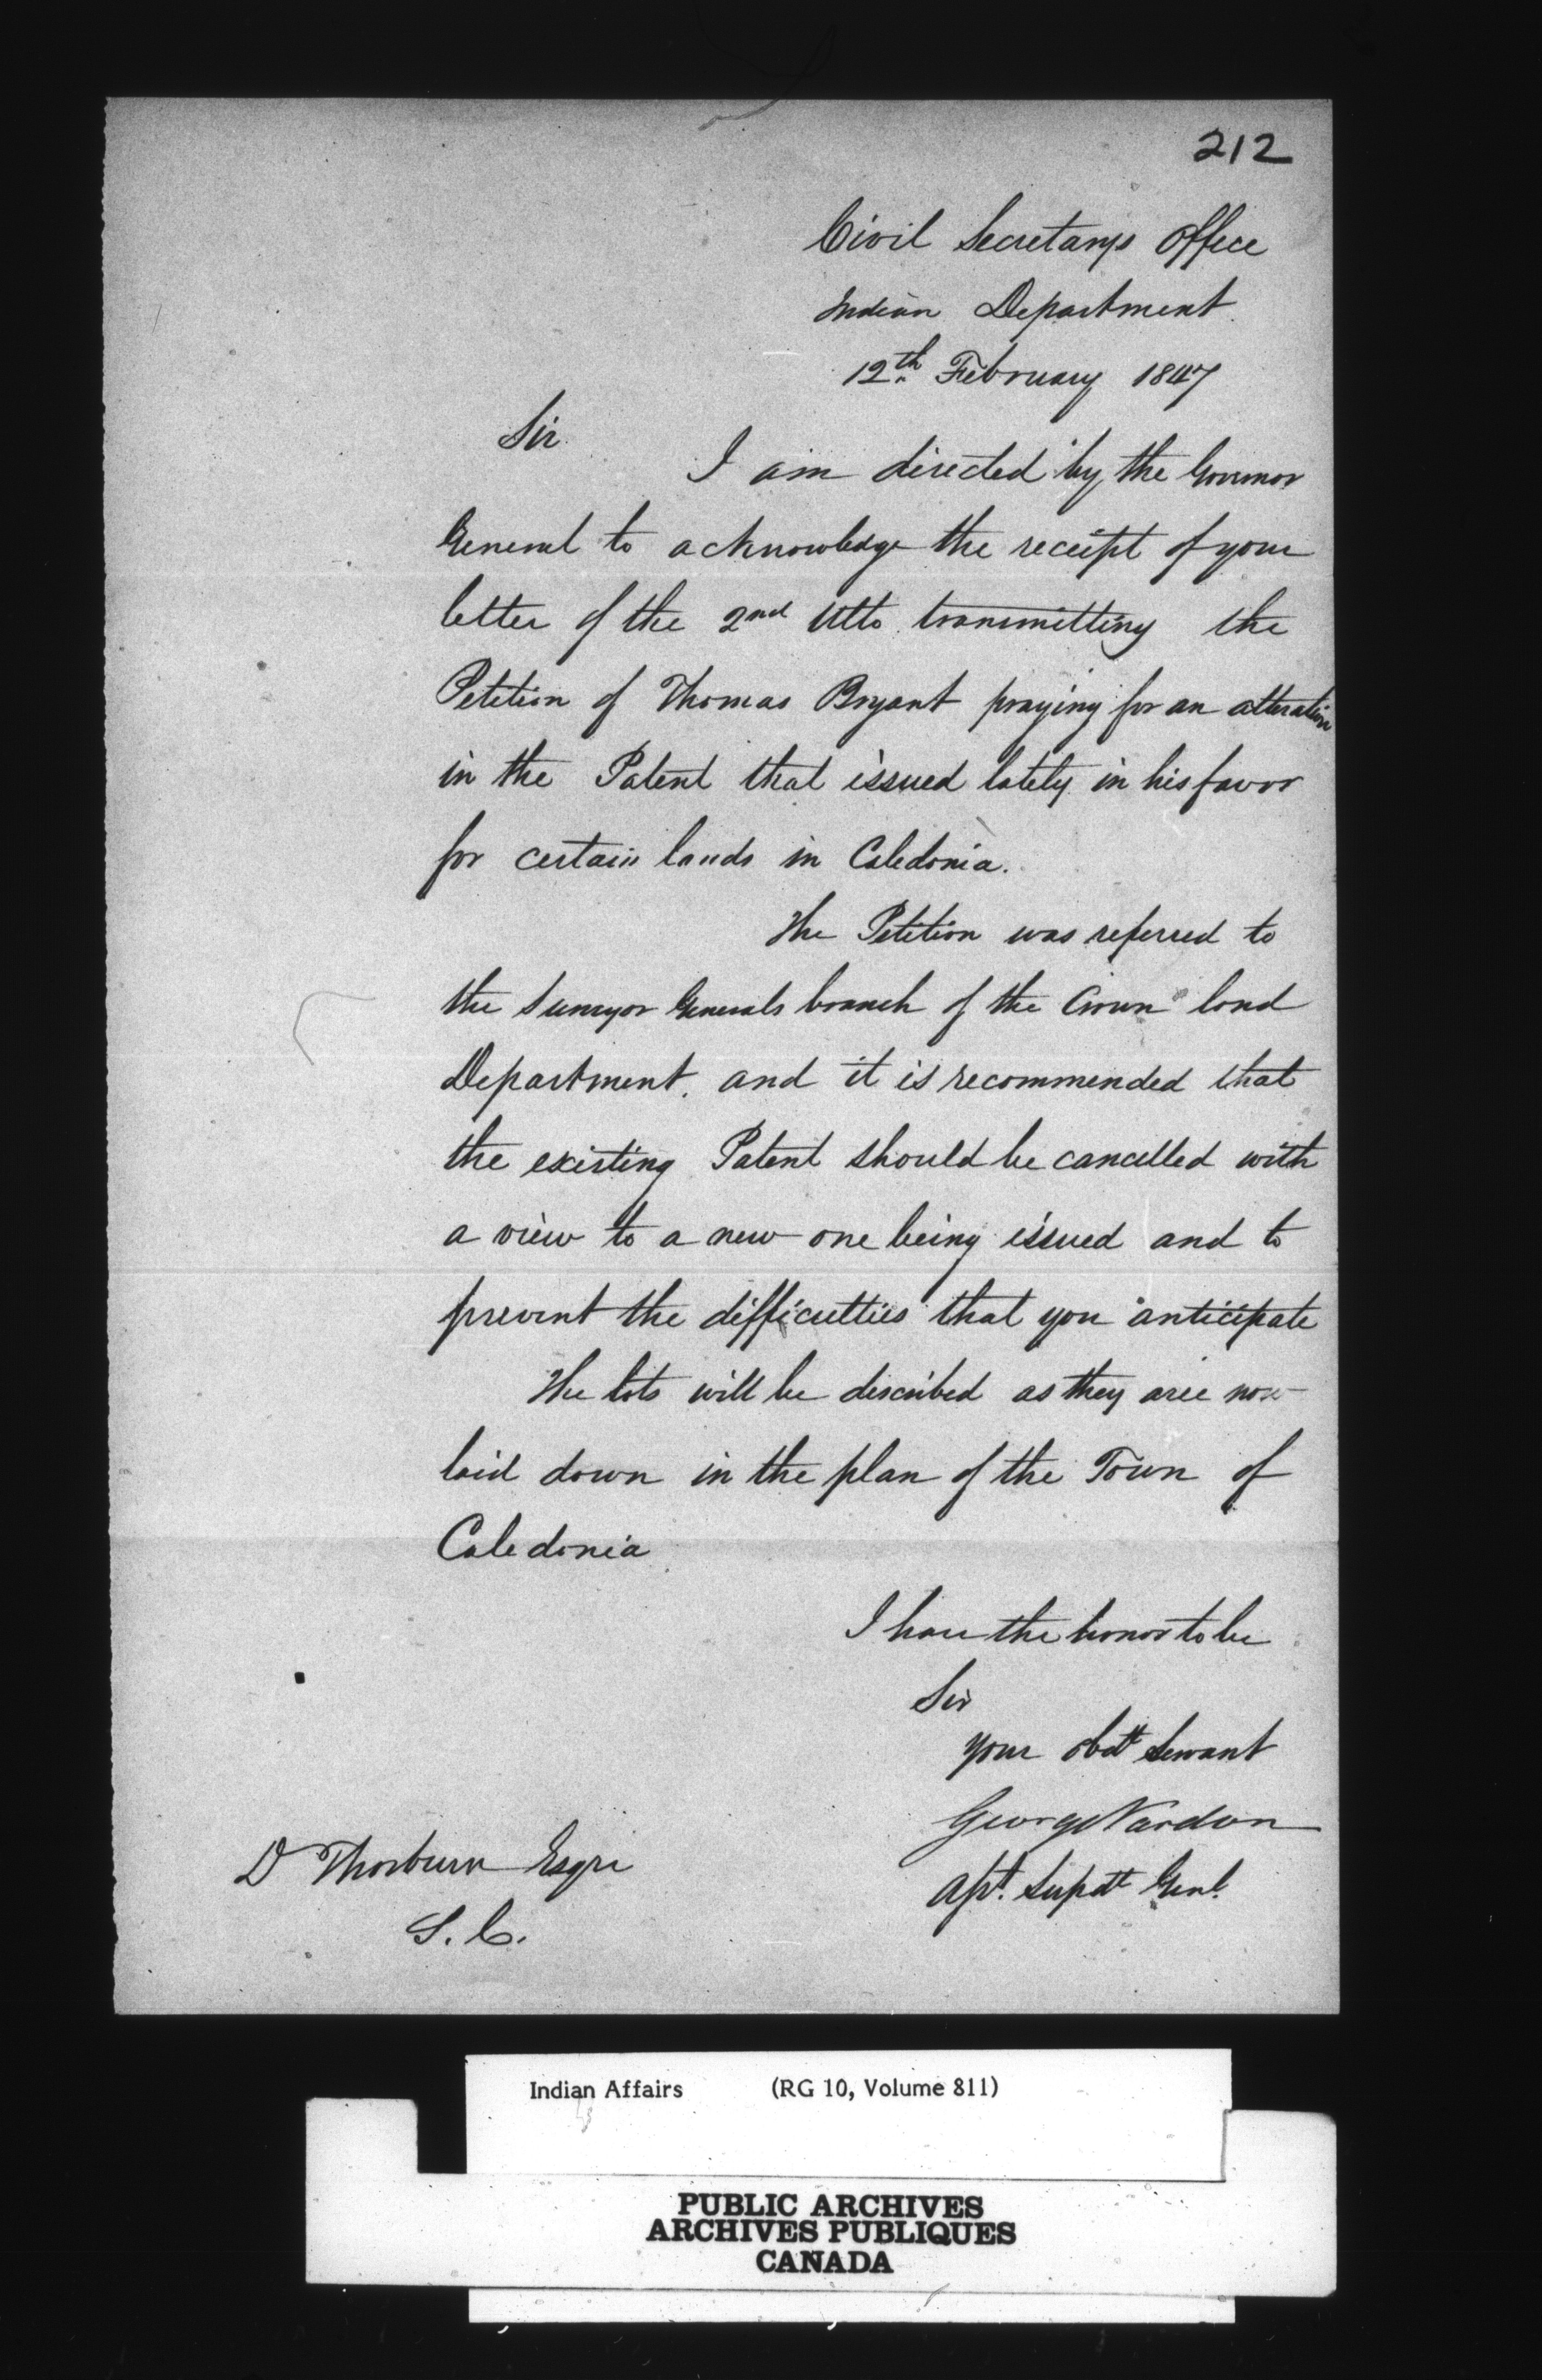 212
Civil Secretarys Office
Indian Department
12th February 1847
Sir
I am directed by the Governor
General to acknowledge the receipt of your
letter of the 2nd Ulto transmitting the
Petition of Thomas Bryant praying for an alteration
in the Patent that issued lately in his favor
for certain lands in Caledonia.
The Petition was referred to
the Surveyor Generals branch of the Crown land
Department. and it is recommended that
the existing Patent should be cancelled with
a view to a new one being issued and to
prevent the difficulties that you anticipate
The lots will be described as they are now
laid down in the plan of the Town of
Caledonia
I have the honor to be
Sir
your obdt Servant
George Vardon
Asst. Supdt Genl.
D Thorburn Esqre
S. C.
Indian Affairs (RG 10, Volume 811)
PUBLIC ARCHIVES
ARCHIVES PUBLIQUES
CANADA